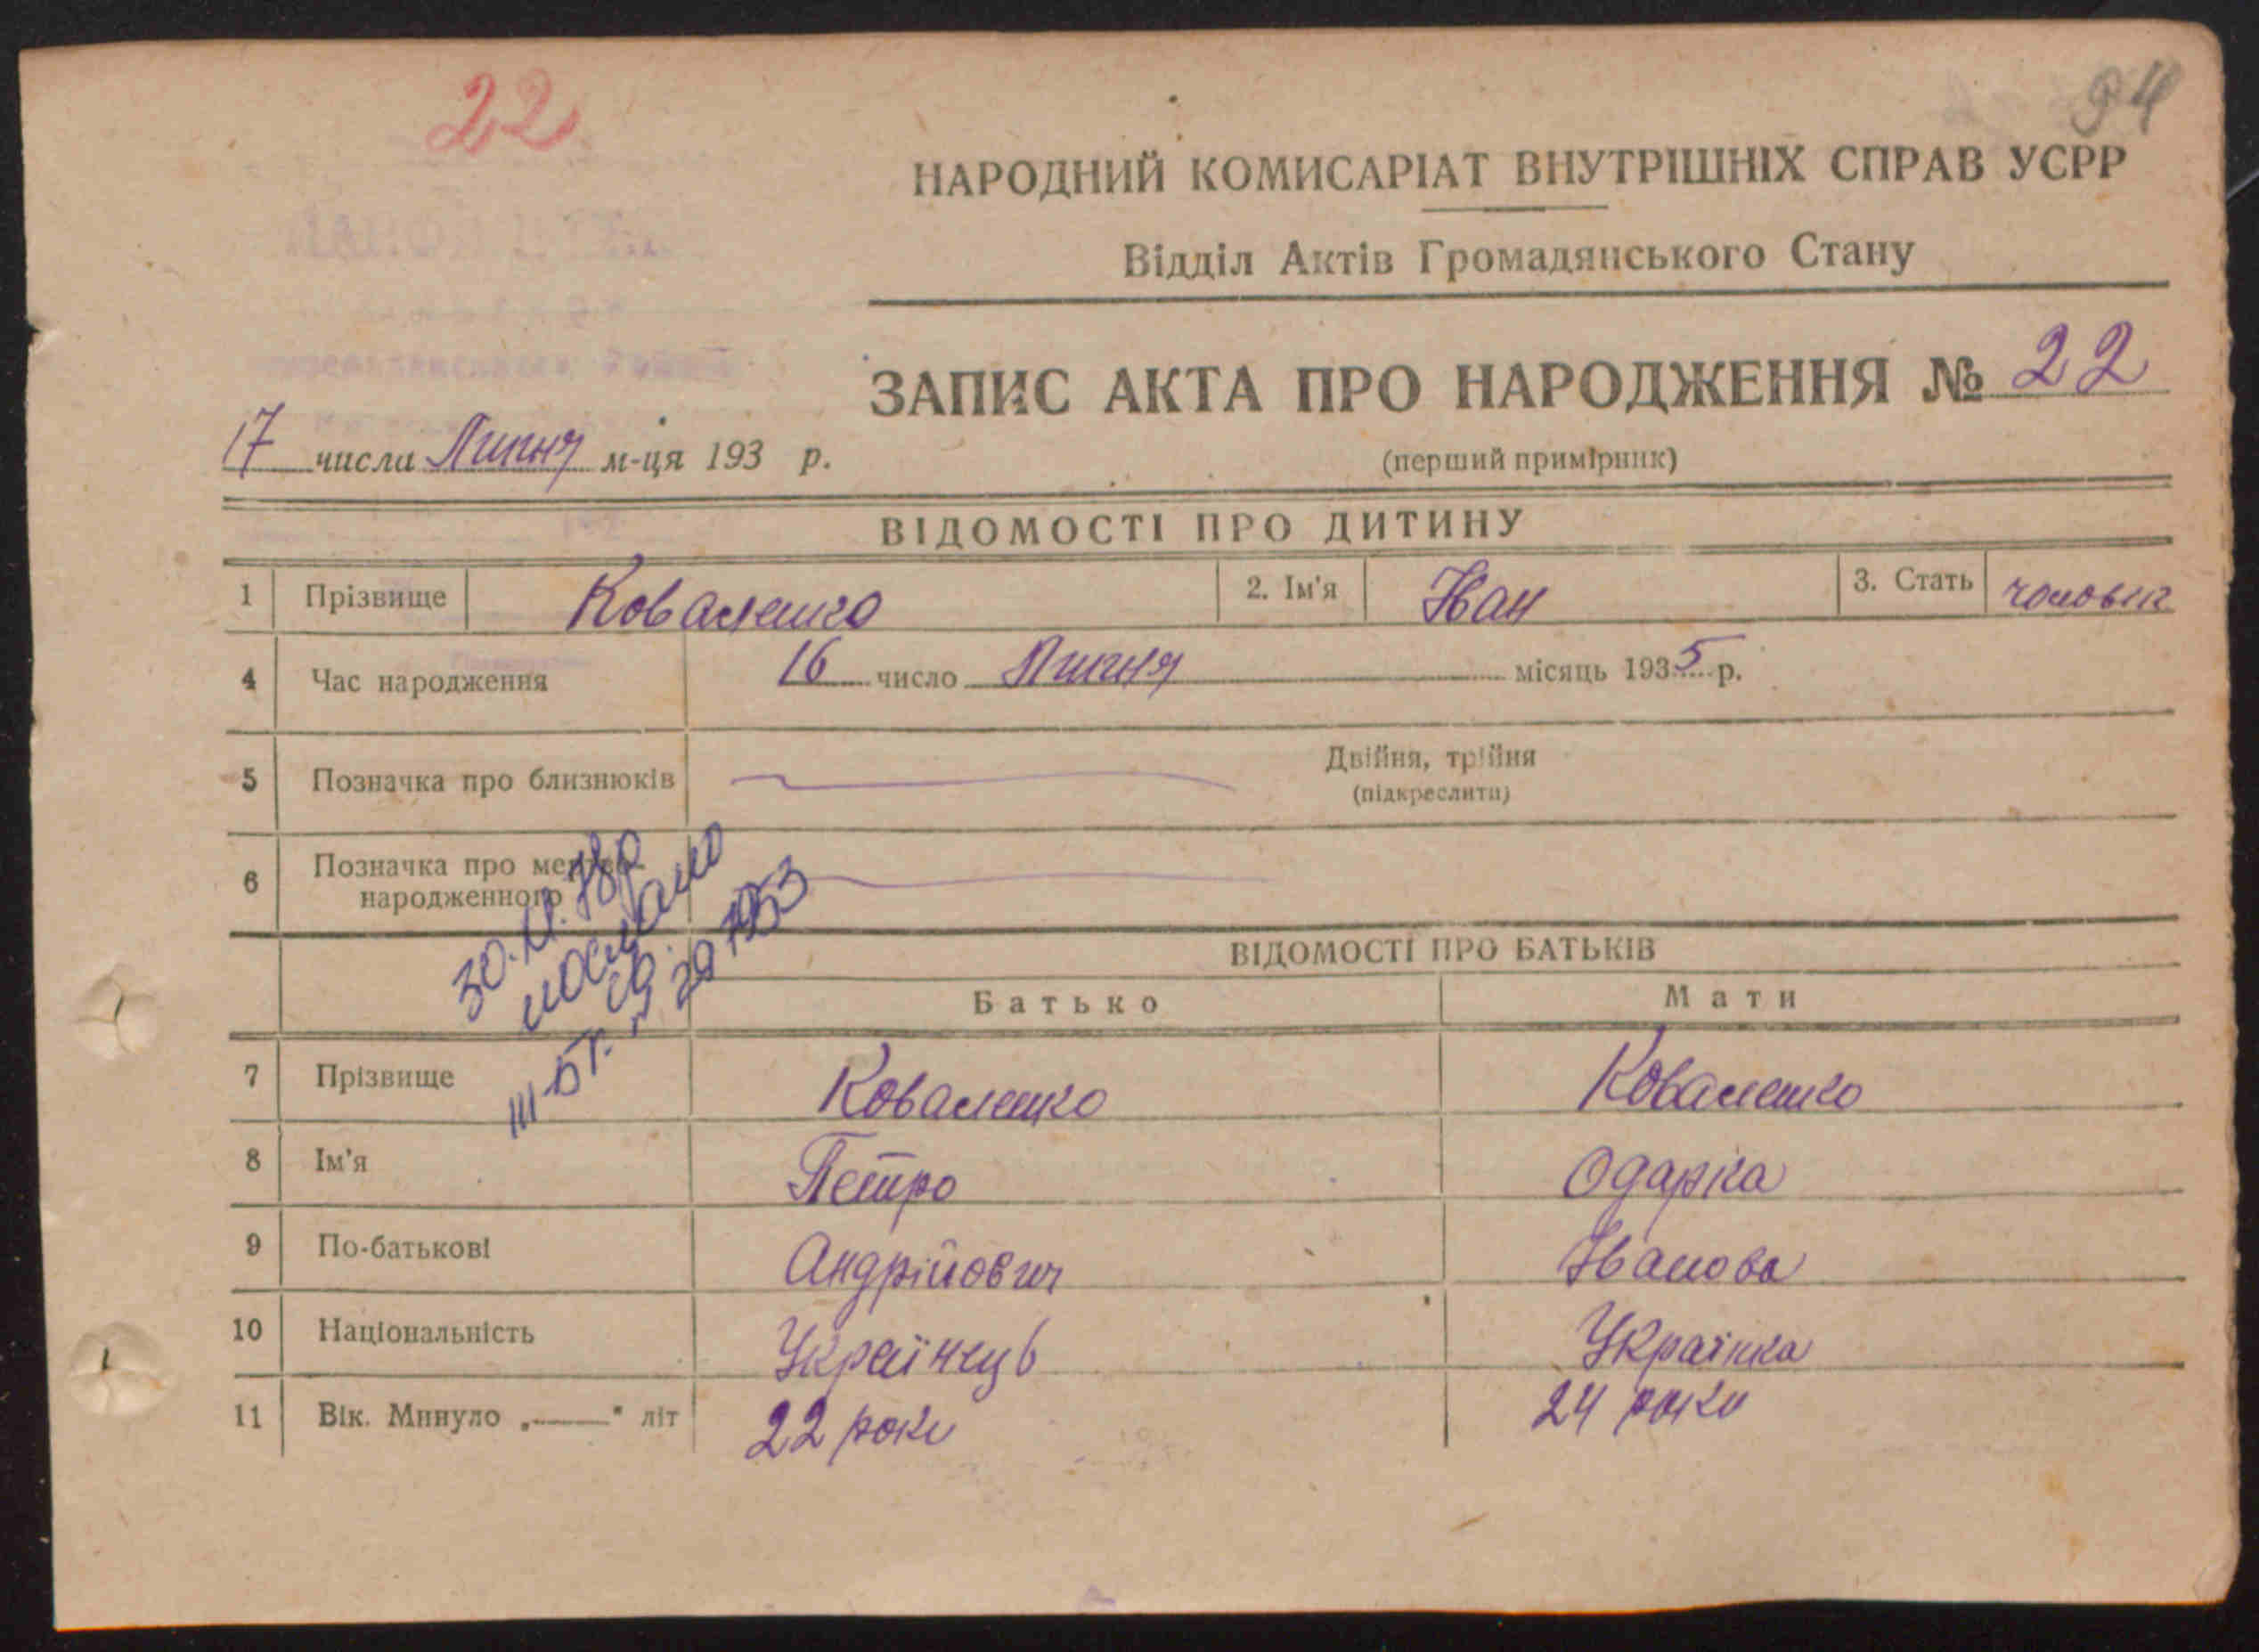 22
94
НАРОДНИЙ КОМИСАРІАТ ВНУТРІШНІХ СПРАВ УСРР
Відділ Актів Громадянського Стану
ЗАПИС АКТА ПРО НАРОДЖЕННЯ № 22
17 числа Липня м-ця 193 р.
(перший примірник)
ВІДОМОСТІ ПРО ДИТИНУ
1 Прізвище Коваленко 2. Ім'я Іван 3. Стать чоловік
4 Час народження 16 число Липня місяць 1935 р.
5 Позначка про близнюків Двійня, трійня
(підкреслити)
6 Позначка про мертво-
народженного
30.XI.78р
послано
III-БГ
ВІДОМОСТІ ПРО БАТЬКІВ
Батько Мати
7 Прізвище Коваленко Коваленко
8 Ім'я Петро Одарка
9 По-батькові Андрійович Іванова
10 Національність Українець Українка
11 Вік. Минуло „——" літ 22 роки 24 роки